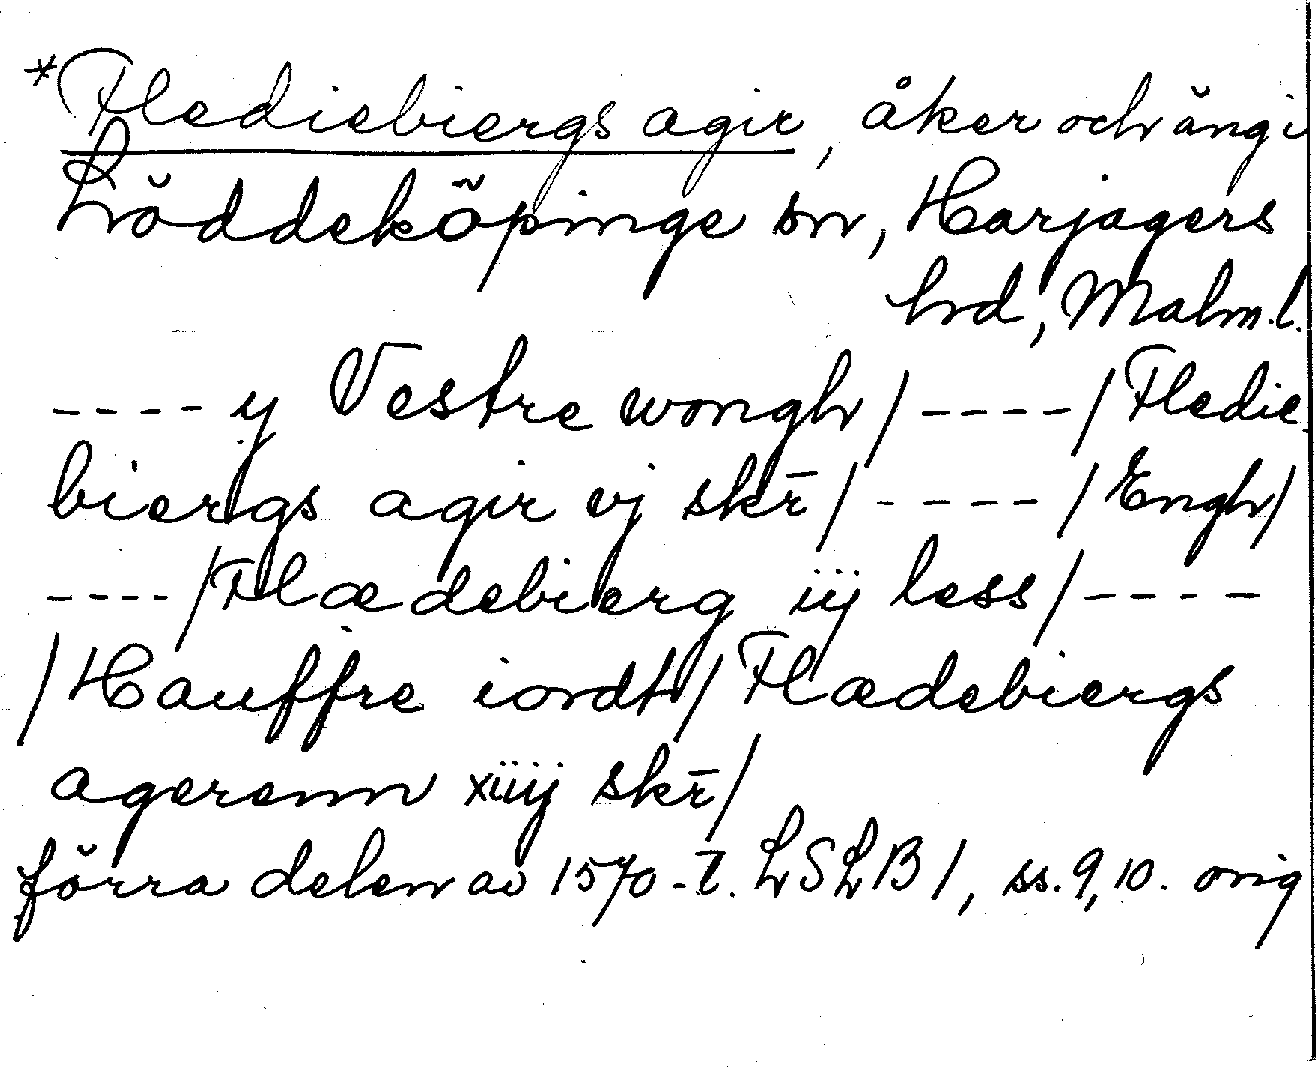 *Flediebiergs agir, åker och äng i
Löddeköpinge sn, Harjagers
hrd, Malm.l.
---- y Vestre wongh/----/Fledie
biergs agir vj skr̄/----/Engh/
----/Flædebierg iij less/----
/Hauffre iordt/Flædebiergs
agerenn xiiij skr̄/
förra delen av 1570-t. LSLB 1, ss. 9, 10. orig